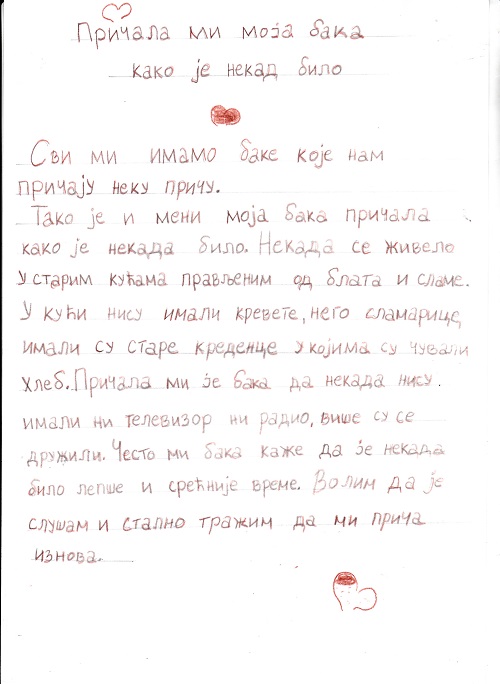 Причала ми моја бака
како је некад било
Сви ми имамо баке које нам
причају неку причу.
Тако је и мени моја бака причала
како је некада било. Некада се живело
у старим кућама прављеним од блата и сламе.
У кући нису имали кревете, него сламарице,
имали су старе креденце у којима су чували
хлеб. Причала ми је бака да некада нису
имали ни телевизор ни радио, више су се
дружили. Често ми бака каже да је некада
било лепше и срећније време. Волим да је
слушам и стално тражим да ми прича
изнова.